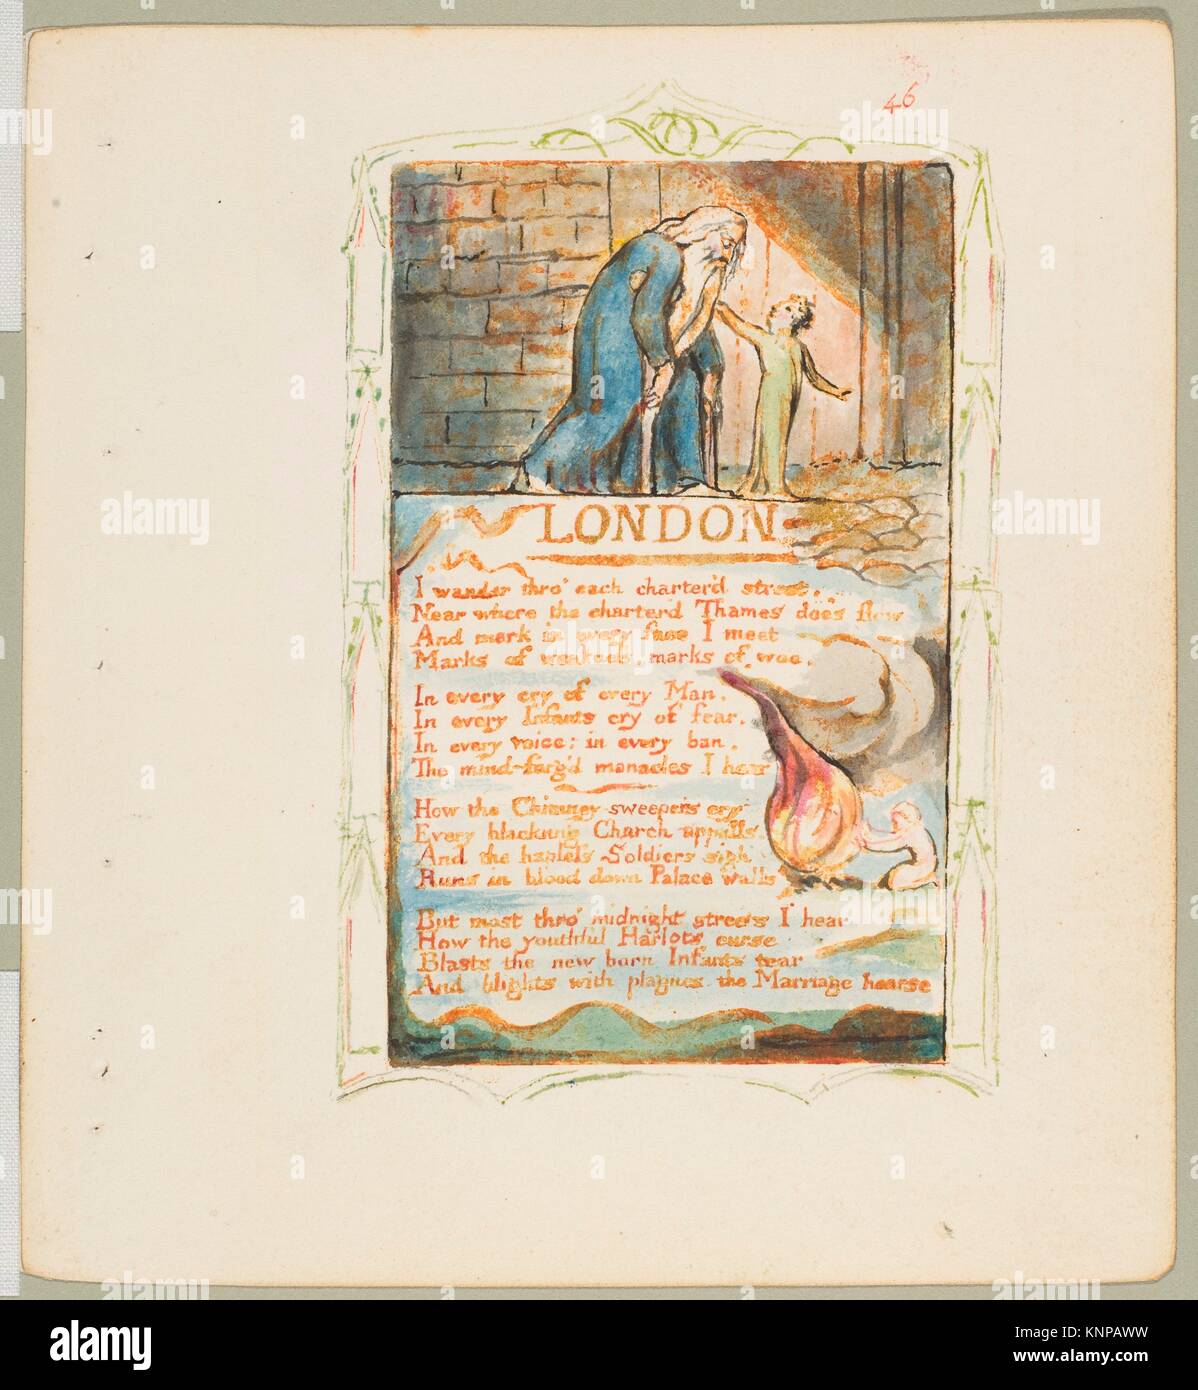 46
LONDON
I wander thro' each charter'd street,
Near where the charter'd Thames does flow
And mark in every face I meet
Marks of weakness, marks of woe.
In every cry of every Man,
In every Infants cry of fear,
In every voice; in every ban,
The mind-forg'd manacles I hear
How the Chimney-sweepers cry
Every blackning Church appalls,
And the hapless Soldiers sigh
Runs in blood down Palace walls
But most thro' midnight streets I hear
How the youthful Harlots curse
Blasts the new born Infants tear
And blights with plagues the Marriage hearse
alamy
Image ID: KNPAWW
www.alamy.com